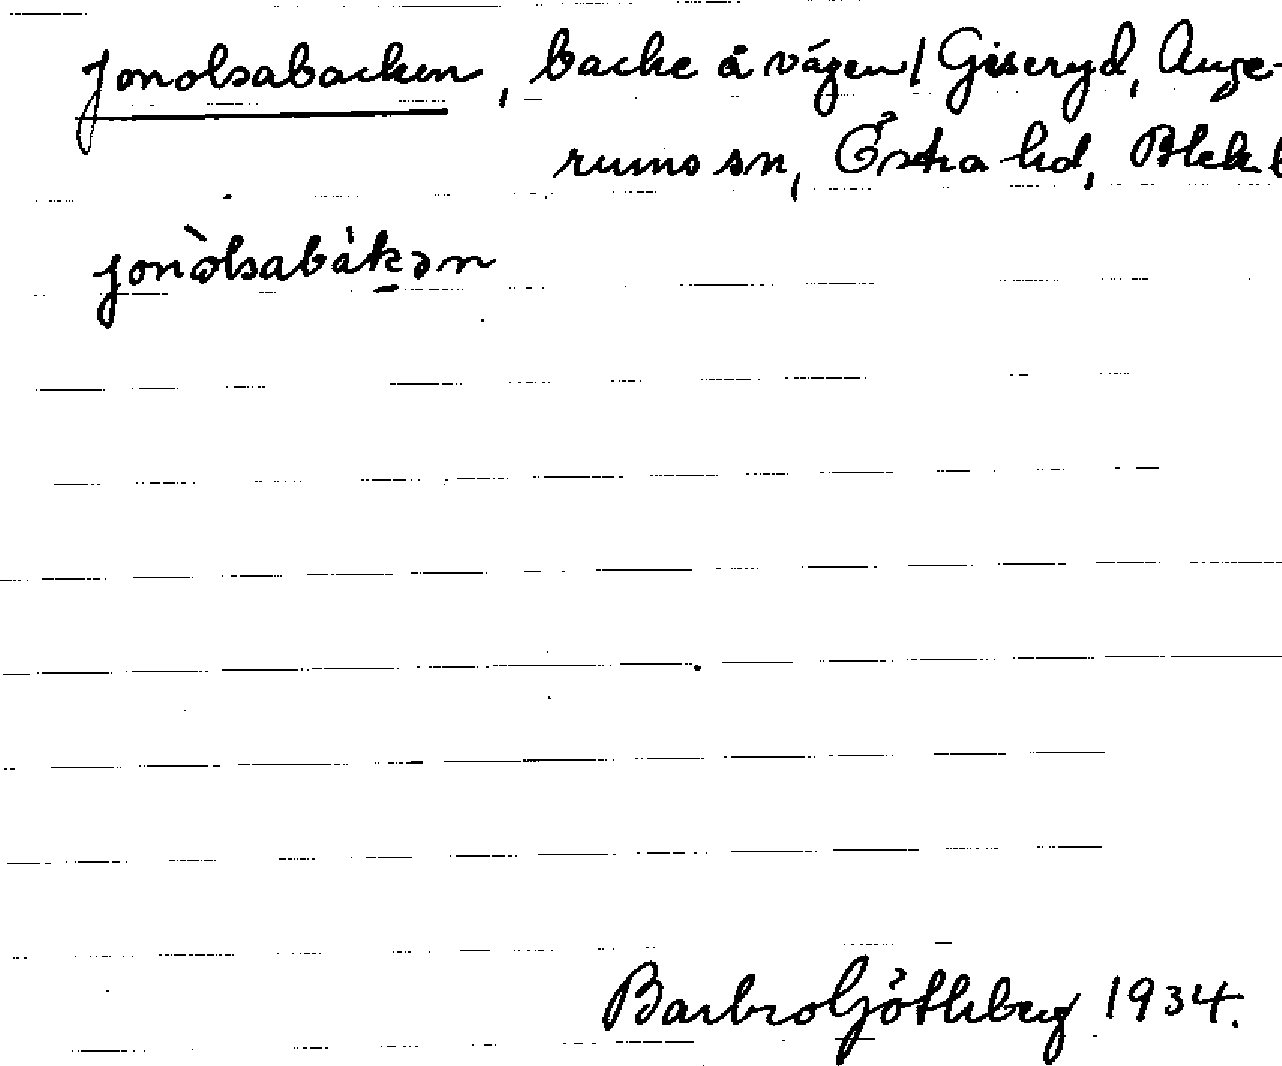 Jonolsabacken, backe å vägen / Giseryd, Ange-
rums sn, Östra hd, Blek
jonòlsabàkən
Barbro Götheberg 1934.